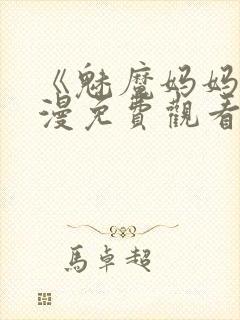 《魅魔妈妈
漫免費觀看
馬卓超